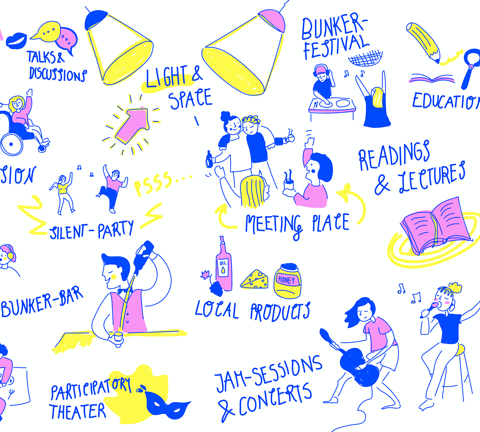 TALKS &
DISCUSSIONS
LIGHT &
SPACE
BUNKER-
FESTIVAL
EDUCATION
SION
PSSS...
SILENT-PARTY
MEETING PLACE
READINGS
& LECTURES
BUNKER-BAR
OIL
HONEY
LOCAL PRODUCTS
PARTICIPATORY
THEATER
JAM-SESSIONS
& CONCERTS